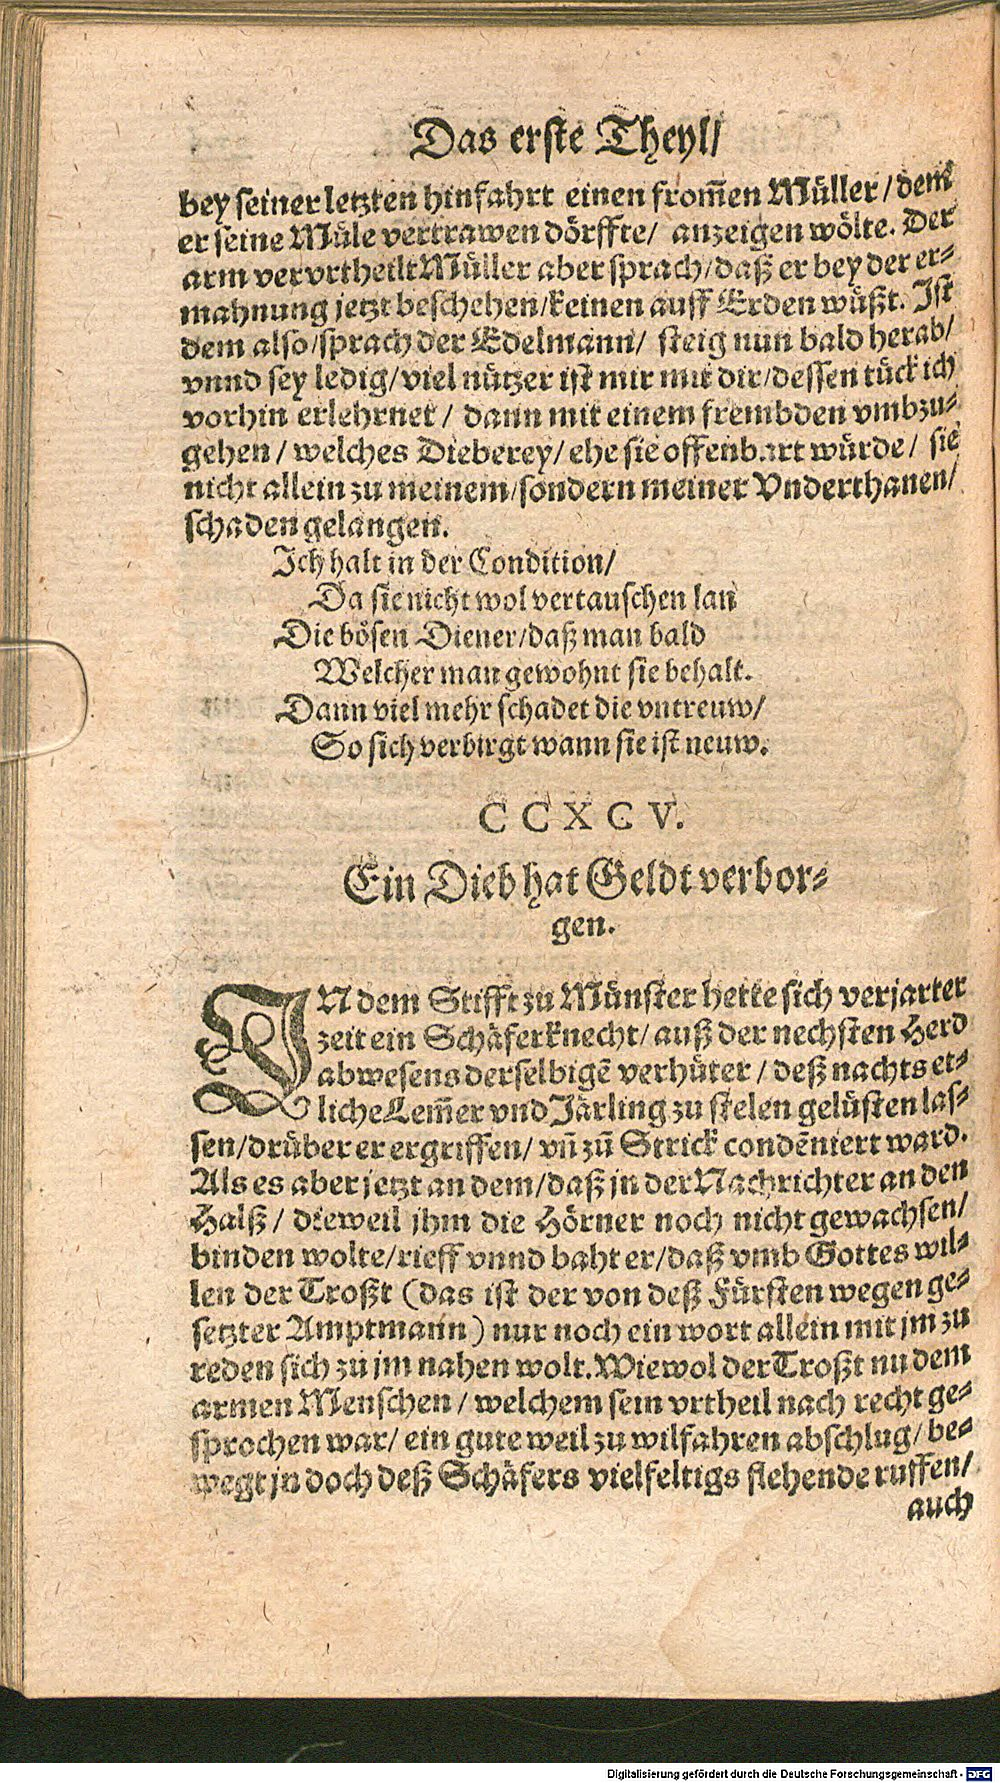 Das erste Theyl/
bey seiner letzten hinfahrt einen from̃en Müller / dem
er seine Müle vertrawen dörffte/ anzeigen wölte. Der
arm vervrtheilt Müller aber sprach/daß er bey der er-
mahnung jetzt beschehen/keinen auff Erden wüßt. Ist
dem also/sprach der Edelmann/ steig nun bald herab/
vnnd sey ledig/viel nützer ist mir mit dir/dessen tück ich
vorhin erlehrnet / dann mit einem frembden vmbzu-
gehen / welches Dieberey/ ehe sie offenbart würde / sie
nicht allein zu meinem/sondern meiner Vnderthanen/
schaden gelangen.
Ich halt in der Condition/
Da sie nicht wol vertauschen lan
Die bösen Diener/daß man bald
Welcher man gewohnt sie behalt.
Dann viel mehr schadet die vntreuw/
So sich verbirgt wann sie ist neuw.
CCXCV.
Ein Dieb hat Geldt verbor-
gen.
IN dem Stifft zu Münster hette sich verjarter
zeit ein Schäferknecht/ auß der nechsten Herd
abwesens derselbigẽ verhüter / deß nachts et-
liche Lem̃er vnd Järling zu stelen gelüsten las-
sen/drüber er ergriffen/ vñ zũ Strick condẽniert ward.
Als es aber jetzt an dem/daß jn der Nachrichter an den
Halß / dieweil jhm die Hörner noch nicht gewachsen/
binden wolte/rieff vnnd baht er/daß vmb Gottes wil-
len der Troßt (das ist der von deß Fürsten wegen ge-
setzter Amptmann) nur noch ein wort allein mit jm zu
reden sich zu jm nahen wolt. Wiewol der Troßt nu dem
armen Menschen / welchem sein vrtheil nach recht ge-
sprochen war/ ein gute weil zu wilfahren abschlug/ be-
wegt jn doch deß Schäfers vielfeltigs flehende ruffen/
auch
Digitalisierung gefördert durch die Deutsche Forschungsgemeinschaft - DFG